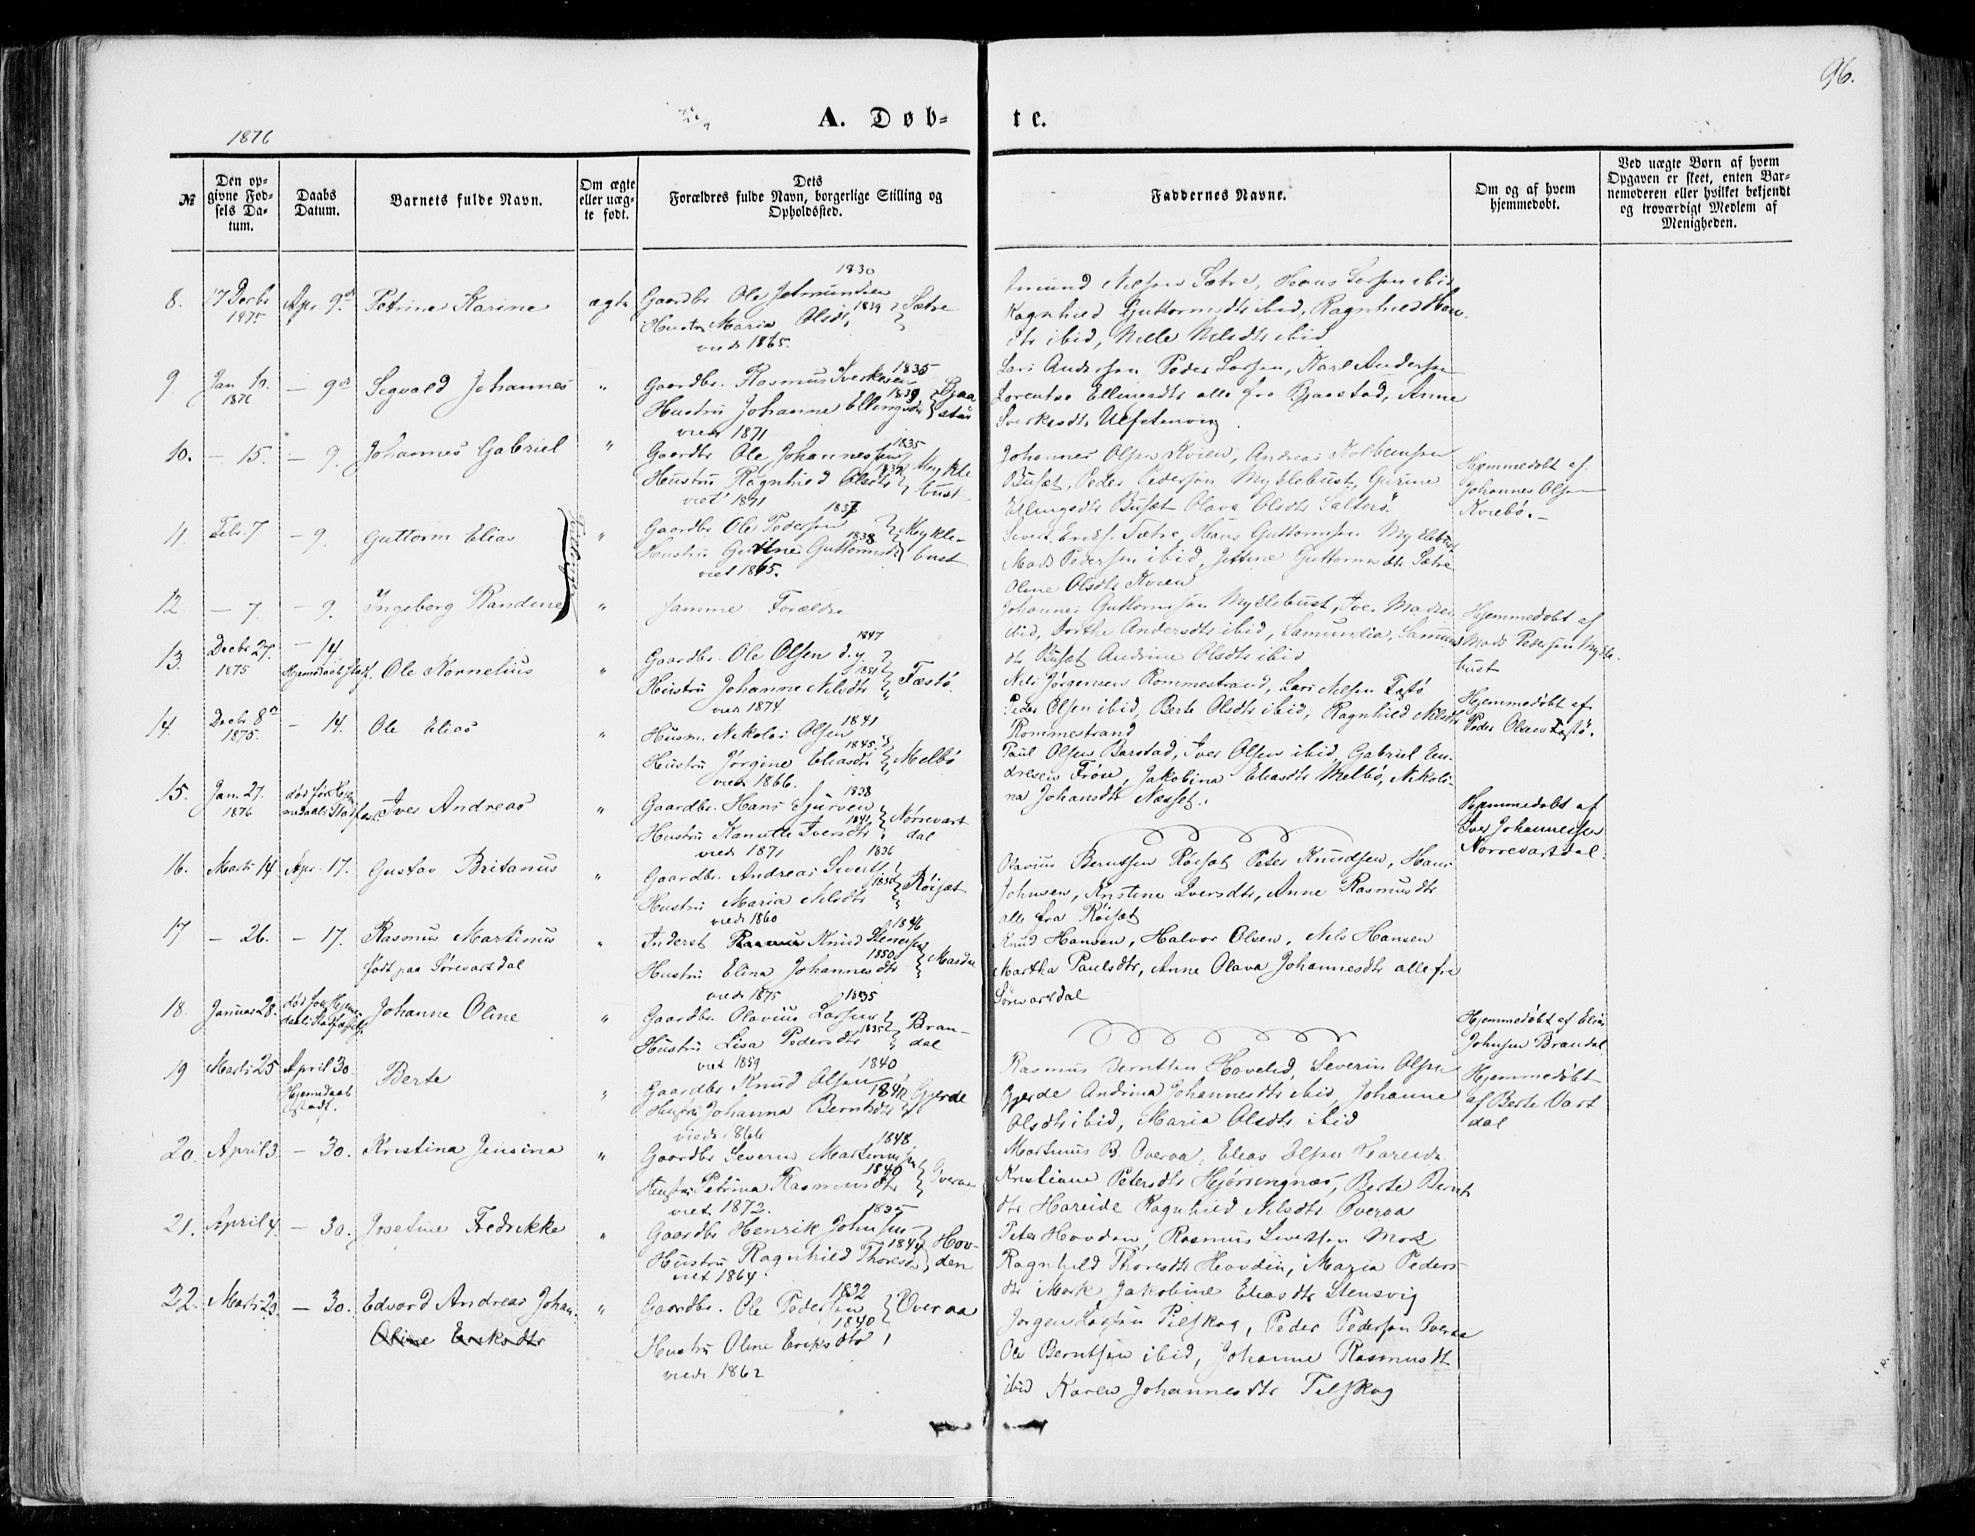 96.
A. Døb-
te.
1876
№
Den op-
givne Fød-
sels Da-
tum.
Daabs
Datum.
Barnets fulde Navn.
Om ægte
eller uæg-
te født.
Dets
Forældres fulde Navn, borgerlige Stilling og
Opholdssted.
Faddernes Navne.
Om og af hvem
hjemmedøbt.
Ved uægte Børn af hvem
Opgaven er skeet, enten Bar-
nemoderen eller hvilket bekjendt
og troværdigt Medlem af
Menigheden.
8. 17 Decbr 1875 Apr. 9de Petrine Karine ægte
1830
Gaardbr. Ole Jetmundsen
Hustru Maria Olsdt. 1839 Sætre
viede 1865.
Amund Nilsen Sætre, Hans
Ragnhild Guttormsdtr ibid, Ragnhild
ibid, Nille Nilsdtr ibid
9. Jan 10. 1876 — 9de Sigvald Johannes "
1835
Gaardbr. Rasmus Sverkesen
1839
Hustru Johanne Ellingsdtr Bjaa
stad
viede 1871
Lars Andersen Peder Larsen, Karl Andersen
Lorentse Ellingsdtr alle fra Bjaastad, Anne
Sverkesdtr Ulfstenvig.
10. — 15. — 9. Johannes Gabriel "
1835
Gaardbr Ole Johannessen
Hustru Ragnhild Olsdtr Mykle
bust
viet 1871
Johannes Olsen Kvien, Andreas Kolbeinsen
Busæt, Peder Pedersen Myklebust, Gurine
Ellingsdtr Busæt Olava Olsdtr Saltero.
Hjemmedøbt af
Johannes Olsen
Kviebø.-
11 Febr. 7 — 9. Guttorm Elias "
1837
Gaardbr Ole Pedersen
1838
Hustru Guttormsdtr Mykle-
bust
viet 1865.
Sivert Eriks. Sætre, Hans Guttormsen Myklebust
Mads Pedersen ibid, Jettine Guttormsdtr Sætre
Oline Olsdtr Kvien
12. — 7. — 9. Ingeborg Randine "
samme Forældre
Johannes Guttormsen Myklebust, Iver Madsen
ibid, Dorthe Andersdtr ibid,
dtr Busæt Andrine Olsdtr ibid
Hjemmedøbt af
Mads Pedersen Mykle-
bust
13. Decbr 27. 1875 — 14. Hjemmedaab stadf. Ole Kornelius "
1847
Gaardbr. Ole Olsen d.y.
1851
Hustru Johanne Nilsdtr Fæstø.
viede 1874
Nils Jørgensen Rommestrand, Lars Nilsen Fæstø
Peder Olsen ibid, Berte Olsdtr ibid, Ragnhild Nilsdtr
Rommestrand
Hjemmedøbt af
Peder Olsen Fæstø.
14. Decbr 8de 1875. — 14. Ole Elias "
1841
Husm. Nikolai Olsen
1845.
Hustru Jørgine Eliasdtr Melbø
viede 1866.
Paul Olsen Barstad, Iver Olsen ibid Gabriel En-
dresen Frøse, Jakobina Eliasdtr Melbø, Nikoli-
na Johansdtr Næsset.
15. Jan. 27. 1876 død før Hjem-
medaabs Stadfæst. Iver Andreas "
1838
Gaardbr. Hans Sjursen
1841
Hustru Kanutte Iversdtr Nørrevart
dal
viede 1871
Hjemmedøbt af
Iver Johannessen
Nørrevartdal.
16. Marts 14 Apr. 17. Gustav Britanus "
1836
Gaardbr. Andreas Sivert
Hustru Maria Nilsdtr Røiset
viede 1860
Olavius Berntsen Røiset Peter Knudsen, Hans
Johnsen, Kristine Iversdtr, Anne Rasmusdtr
alle fra Røiset
17 — 26. — 17. Rasmus Martinus
født paa Sørevartdal "
1846
Inderst Knud Stenersen
1850
Hustru Elina Johannesdtr Masdal
viede 1875
Knud Hansen, Halvor Olsen, Nils Hansen
Martha Paulsdtr, Anne Olava Johannesdtr alle fra
Sørevartdal
18. Januar 28. død før Hjem-
daabs Stadfæstelse Johanne Oline "
1835
Gaardbr. Olavius Larsen
1835
Hustru Lisa Pedersdtr Bran-
dal
viet 1859
Hjemmedøbt af Elias
Johnsen Brandal
19 Marts 25 April 30. Hjemdaab
stadf. Berte "
1840
Gaardbr Knud Olsen
Hustru Johanna Berntsdtr Gjerde
viede 1866
Rasmus Berntsen Hovelid, Severin Olsen
Gjerde Andrina Johannesdtr ibid, Johanne
Olsdtr ibid, Maria Olsdtr ibid
Hjemmedøbt
af Berte Vart
dal
20. April 3. — 30. Kristina Jensina "
1848.
Gaardbr Severin Martinussen
1840
Hustru Petrina Rasmusdtr Overaa
viet 1872.
Martinus B. Overaa, Elias Olsen Hareide
Kristiane Petersdtr Hjørungnæs, Berte Bernt
dtr Hareide Ragnhild Nilsdtr Overaa
21. April 4. — 30. Josefine Fredrikke "
1835
Gaardbr Henrik Johnsen
1844
Hustru Ragnhild Thoresdtr Hov-
den
viet 1864.
Peter Hovden, Rasmus Sivertsen Mork
Ragnhild Thoresdtr Hovden, Maria Peders-
dtr Mork Jakobine Eliasdtr Stensvig
22. Marts 20. — 30. Edvard Andreas Johan. "
Oline Eriksdtr
1832
Gaardbr. Ole Pedersen Overaa
1840
Hustru Oline Eriksdtr
viede 1862
Jørgen Larsen Pilskog, Peder Pedersen Overaa
Ole Berntsen ibid, Johanne Rasmusdt
ibid Karen Johannesdtr Pilskog